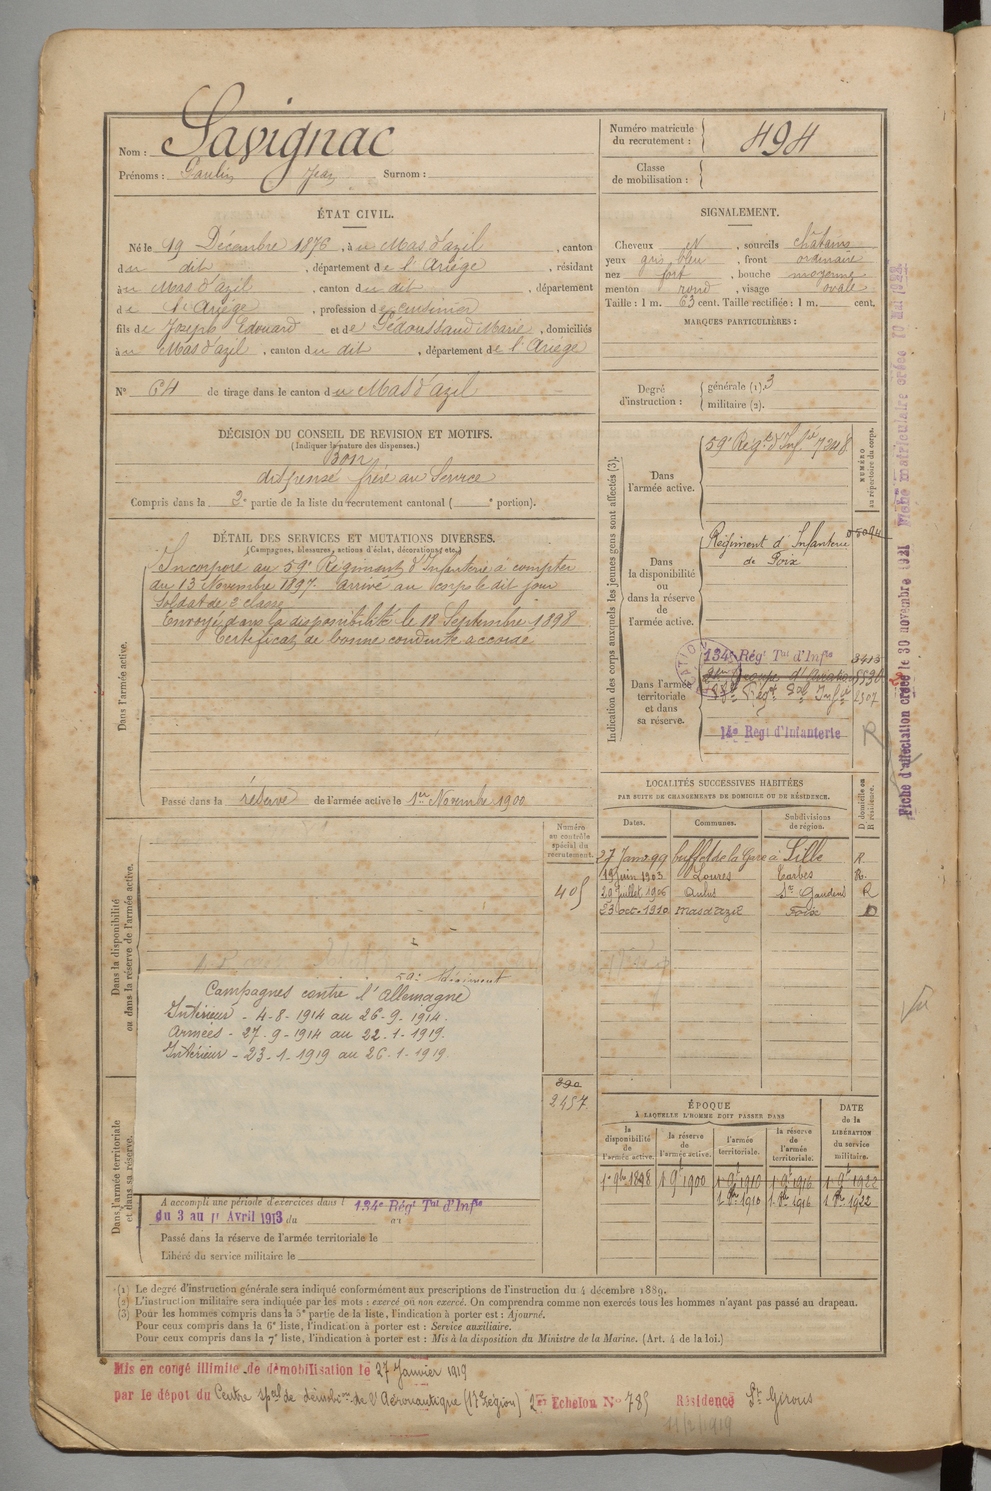 Nom : Savignac
Prénoms : Paulin Jean Surnom :
Numéro matricule du recrutement : 494
Classe de mobilisation :
ÉTAT CIVIL.
Né le 19 Décembre 1876, à u Mas d'azil, canton
du dit, département de l'Ariège, résidant
à u Mas d'azil, canton du dit, département
de l'Ariège, profession de cuisinier
fils de Joseph Edouard et de Dédoussaud Marie, domiciliés
à u Mas d'azil, canton du dit, département de l'Ariège
N° 64 de tirage dans le canton du Mas d'azil
SIGNALEMENT.
Cheveux N, sourcils châtains
yeux gris bleu, front ordinaire
nez fort, bouche moyenne
menton rond, visage ovale
Taille : 1 m. 63 cent. Taille rectifiée : 1 m. cent.
MARQUES PARTICULIÈRES :
Degré d'instruction : générale (1). 3
militaire (2).
DÉCISION DU CONSEIL DE REVISION ET MOTIFS.
(Indiquer la nature des dispenses.)
Bon
dispensé frère au Service
Compris dans la 2e partie de la liste du recrutement cantonal ( e portion).
DÉTAIL DES SERVICES ET MUTATIONS DIVERSES.
(Campagnes, blessures, actions d'éclat, décorations, etc.)
Dans l'armée active.
Incorporé au 59e Régiment d'Infanterie à compter
du 13 Novembre 1897. Arrivé au corps le dit jour
Soldat de 2e classe
Envoyé dans la disponibilité le 18 Septembre 1898
Certificat de bonne conduite accordé
Passé dans la réserve de l'armée active le 1er Novembre 1900
Indication des corps auxquels les jeunes gens sont affectés (3).
NUMÉRO au répertoire du corps.
Dans l'armée active.
59e Régt d'Infie 7248
Dans la disponibilité ou dans la réserve de l'armée active.
Régiment d'Infanterie
de Foix
Dans l'armée territoriale et dans sa réserve.
134e Régt Tal d'Infie 3413
14e Régt d'Infanterie
R
Dans la disponibilité ou dans la réserve de l'armée active.
Numéro au contrôle spécial du recrutement.
405
59e Régiment
Campagnes contre l'Allemagne
Intérieur - 4-8-1914 au 26-9-1914.
Armées - 27-9-1914 au 22-1-1919.
Intérieur - 23-1-1919 au 26-1-1919.
2457
Dans l'armée territoriale et dans sa réserve.
A accompli une période d'exercices dans l 134e Régt Tal d'Infie
du 3 au 11 Avril 1913 du au
Passé dans la réserve de l'armée territoriale le
Libéré du service militaire le
LOCALITÉS SUCCESSIVES HABITÉES
PAR SUITE DE CHANGEMENTS DE DOMICILE OU DE RÉSIDENCE.
D domicile ou R résidence.
Dates. Communes. Subdivisions de région.
27 Janv 99 buffet de la Gare à Lille R
19 Juin 1903 Loures Tarbes R.
20 Juillet 1906 Aulus St Gaudens R
23 oct. 1910 Mas d'azil Foix D
ÉPOQUE
À LAQUELLE L'HOMME DOIT PASSER DANS
DATE de la LIBÉRATION du service militaire.
la disponibilité de l'armée active. la réserve de l'armée active. l'armée territoriale. la réserve de l'armée territoriale.
1er 9bre 1898 1 9bre 1900 1 9bre 1910 1 9bre 1916 1 9bre 1922
1 8bre 1910 1 8bre 1916 1 8bre 1922
(1) Le degré d'instruction générale sera indiqué conformément aux prescriptions de l'instruction du 4 décembre 1889.
(2) L'instruction militaire sera indiquée par les mots : exercé ou non exercé. On comprendra comme non exercés tous les hommes n'ayant pas passé au drapeau.
(3) Pour les hommes compris dans la 5e partie de la liste, l'indication à porter est : Ajourné.
Pour ceux compris dans la 6e liste, l'indication à porter est : Service auxiliaire.
Pour ceux compris dans la 7e liste, l'indication à porter est : Mis à la disposition du Ministre de la Marine. (Art. 4 de la loi.)
Mis en congé illimité de démobilisation le 27 Janvier 1919
par le dépôt du Centre spal de démobon de l'Aéronautique (17e Région) 2e Echelon N° 785 Résidence St Girons
11/2/1919
Fiche d'affectation créée le 30 novembre 1921 Fiche matriculaire créée 10 Mai 1922